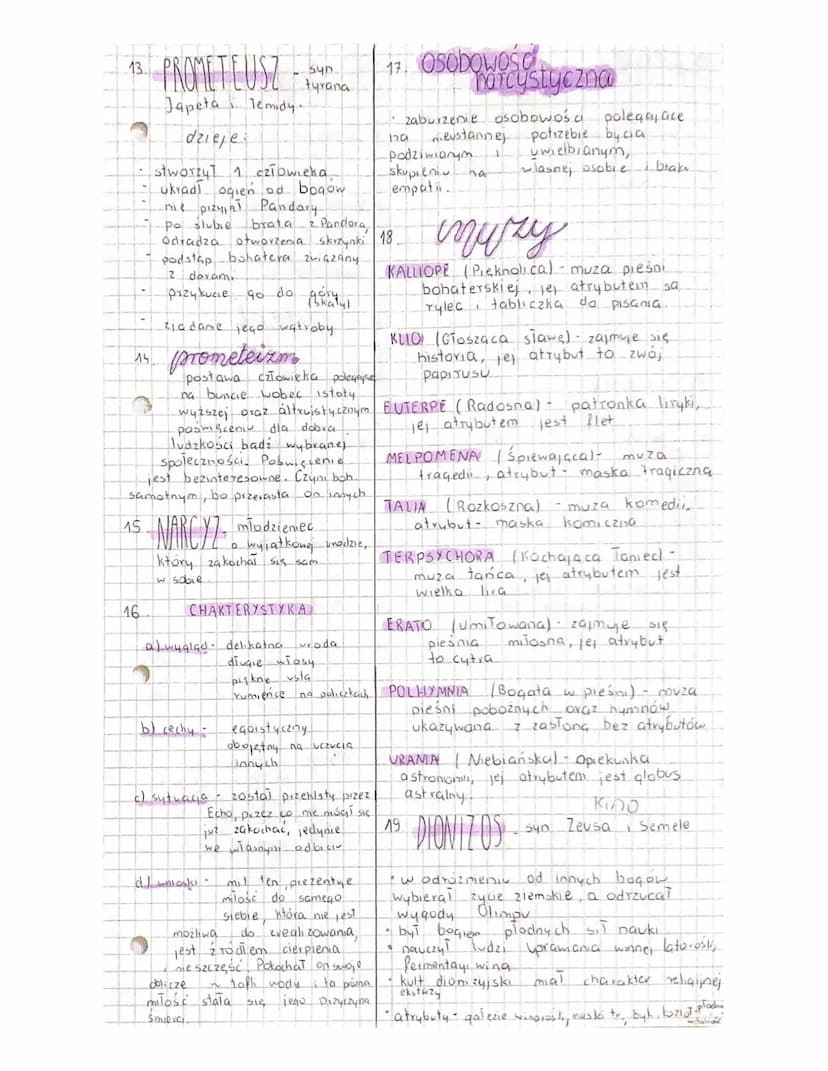 13. PROMETEUSZ - syn
tyrana
Japeta i Temidy.
dzieje:
- stworzył 1 człowieka
- ukradł ogień od bogów
- nie przyjął Pandory
- po ślubie brata z Pandorą,
odradza otworzenia skrzynki
- podstęp bohatera związany
z darami
- przykucie go do góry
(skały)
- zjadanie jego wątroby
14. prometeizm
postawa człowieka polegająca
na buncie wobec istoty
wyższej oraz altruistycznym
poświęceniu dla dobra
ludzkości bądź wybranej
społeczności. Poświęcenie
jest bezinteresowne. Czyni boh.
samotnym, bo przerasta on innych
15. NARCYZ - młodzieniec
o wyjątkowej urodzie,
który zakochał się sam
w sobie
16. CHAKTERYSTYKA
a) wygląd - delikatna uroda
długie włosy
piękne usta
rumieńce na policzkach
b) cechy - egoistyczny
obojętny na uczucia
innych
c) sytuacja - został przeklęty przez
Echo, przez co nie mógł się
już zakochać, jedynie
we własnym odbiciu
d) wnioski - mit ten prezentuje
miłość do samego
siebie, która nie jest
możliwa do zrealizowania,
jest źródłem cierpienia
i nieszczęść. Pokochał on swoje
oblicze w tafli wody i ta
miłość stała się jego przyczyną
śmierci.
17. OSOBOWOŚĆ
narcystyczna
· zaburzenie osobowości polegające
na nieustannej potrzebie bycia
podziwianym i uwielbianym,
skupieniu na własnej osobie i braku
empatii.
18. muzy
KALLIOPE (Pięknolica) - muza pieśni
bohaterskiej, jej atrybutem są
rylec i tabliczka do pisania.
KLIO (Głosząca sławę) - zajmuje się
historią, jej atrybut to zwój
papirusu
EUTERPE (Radosna) - patronka liryki,
jej atrybutem jest flet
MELPOMENA (Śpiewająca) - muza
tragedii, atrybut - maska tragiczna
TALIA (Rozkoszna) - muza komedii,
atrybut - maska komiczna
TERPSYCHORA (Kochająca Taniec) -
muza tańca, jej atrybutem jest
wielka lira
ERATO (Umiłowana) - zajmuje się
pieśnią miłosną, jej atrybut
to cytra
POLHYMNIA (Bogata w pieśni) - muza
pieśni pobożnych oraz hymnów
ukazywana z zasłoną bez atrybutów
URANIA (Niebiańska) - opiekunka
astronomii, jej atrybutem jest globus
astralny.
KINO
19. DIONIZOS - syn Zeusa i Semele
• w odróżnieniu od innych bogów
wybierał życie ziemskie, a odrzucał
wygody Olimpu
• był bogiem płodnych sił nauki
• nauczył ludzi uprawiania winnej latorośli,
fermentacji wina
• kult dionizyjski miał charakter religijnej
ekstazy
• atrybuty - gałęzie winorośli, maski tr, byk, kozioł